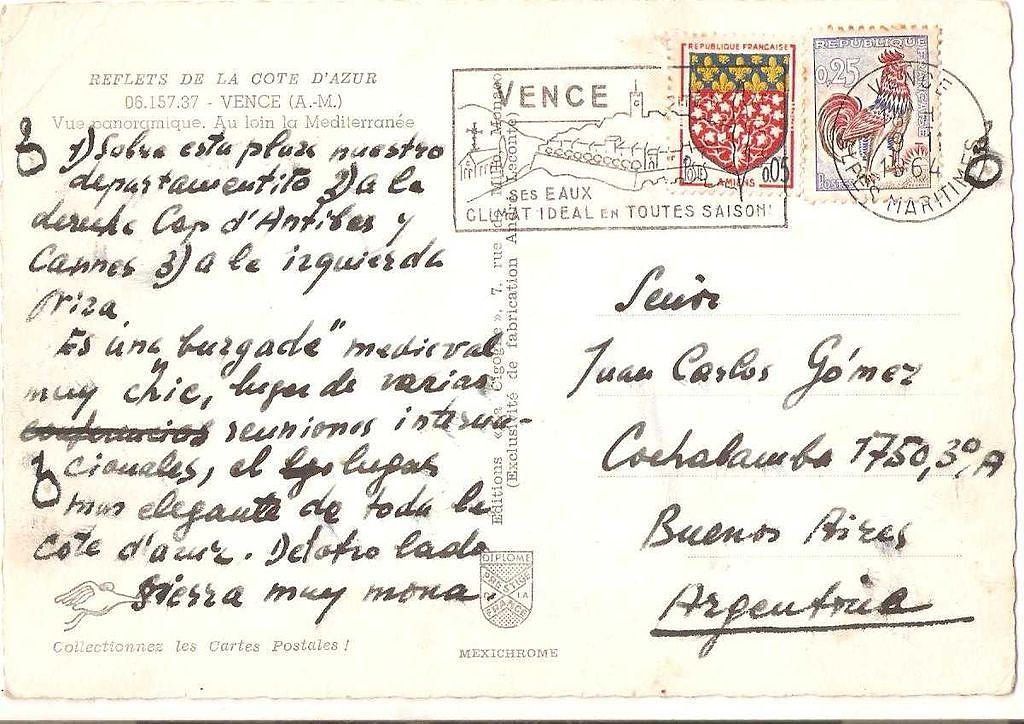 REFLETS DE LA COTE D'AZUR
06.157.37 - VENCE (A.-M.)
Vue panoramique. Au loin la Mediterranée
1) Sobre esta plaza nuestro
departamentito 2) a la
derecha Cap d'Antibes y
Cannes 3) a la izquierda
Niza
Es una "burgade" medieval
muy chic, lugar de varias
conferencias reuniones interna-
cionales, el lugar
mas elegante de toda la
Cote d'azur. Del otro lado
sierra muy mona.
Collectionnez les Cartes Postales !
Editions « La Cigogne », 7, rue de Monaco
(Exclusivité de fabrication André Leconte)
DIPLOME
PRESTIGE
DE LA
FRANCE
MEXICHROME
VENCE
SES EAUX
CLIMAT IDEAL EN TOUTES SAISONS
REPUBLIQUE FRANÇAISE
POSTES
0,05
AMIENS
REPUBLIQUE
0,25
Postes
VENCE
ALPES MARITIMES
Señor
Juan Carlos Gómez
Cochabamba 1750, 3º, A
Buenos Aires
Argentina